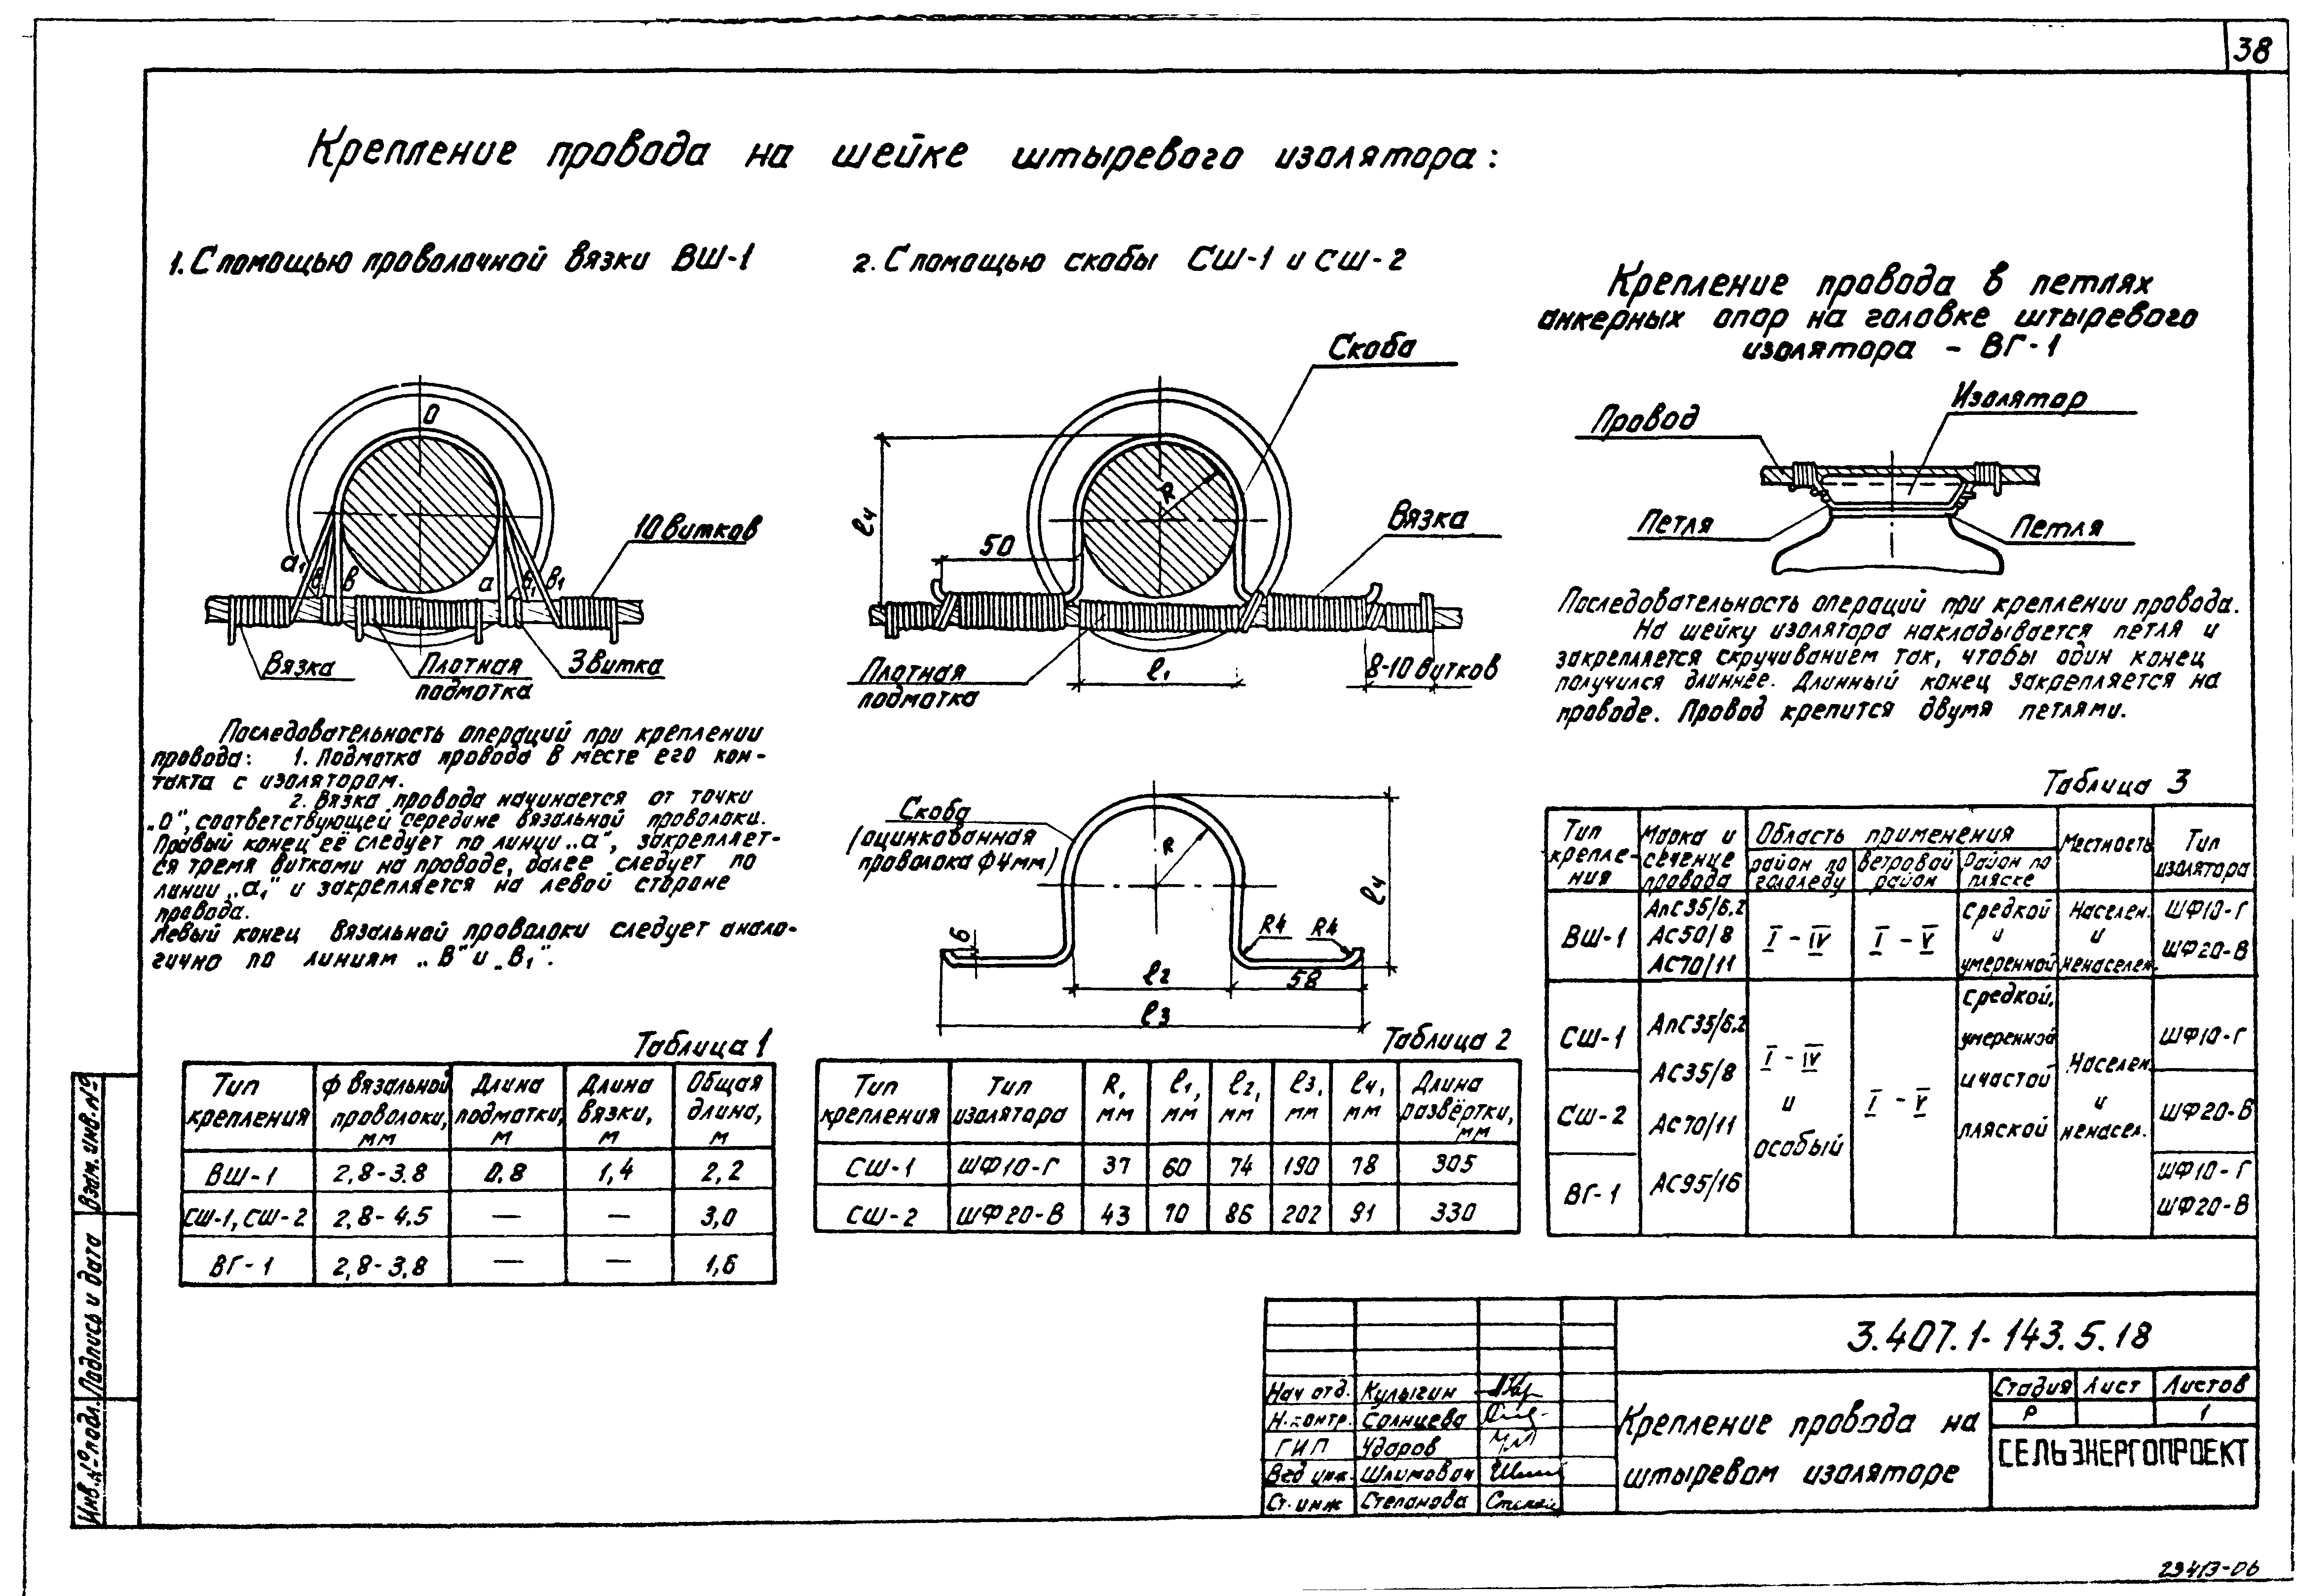 38
Крепление провода на шейке штыревого изолятора:
1. С помощью проволочной вязки ВШ-1
2. С помощью скобы СШ-1 и СШ-2
Крепление провода в петлях
анкерных опор на головке штыревого
изолятора - ВГ-1
О
10 витков
а₁
в
в
а
в₁
в₁
Вязка
Плотная
подмотка
3 витка
Скоба
Вязка
R
ℓ4
50
Плотная
подмотка
ℓ1
8-10 витков
Провод
Изолятор
Петля
Петля
Последовательность операций при креплении
провода: 1. Подмотка провода в месте его кон-
такта с изолятором.
2. Вязка провода начинается от точки
„О", соответствующей середине вязальной проволоки.
Правый конец её следует по линии „а", закрепляет-
ся тремя витками на проводе, далее следует по
линии „а₁" и закрепляется на левой стороне
провода.
Левый конец вязальной проволоки следует анало-
гично по линиям „в" и „в₁".
Скоба
(оцинкованная
проволока ф4мм)
R
ℓ4
6
R4 R4
ℓ2
58
ℓ3
Последовательность операций при креплении провода.
На шейку изолятора накладывается петля и
закрепляется скручиванием так, чтобы один конец
получился длиннее. Длинный конец закрепляется на
проводе. Провод крепится двумя петлями.
Таблица 1
Тип крепления
ф вязальной проволоки, мм
Длина подмотки, м
Длина вязки, м
Общая длина, м
ВШ-1 2,8-3.8 0,8 1,4 2,2
СШ-1, СШ-2 2,8-4.5 — — 3,0
ВГ-1 2,8-3,8 — — 1,6
Таблица 2
Тип крепления
Тип изолятора
R, мм
ℓ1, мм
ℓ2, мм
ℓ3, мм
ℓ4, мм
Длина развёртки, мм
СШ-1 ШФ10-Г 37 60 74 190 78 305
СШ-2 ШФ20-В 43 70 86 202 91 330
Таблица 3
Тип крепле-ния
Марка и сечение провода
Область применения
район по гололеду
Ветровой район
Район по пляске
Местность
Тип изолятора
ВШ-1
АпС35/6.2
АС50/8
АС70/11
I - IV
I - V
с редкой
и
умеренной
Населен.
и
ненаселен.
ШФ10-Г
ШФ20-В
СШ-1
СШ-2
ВГ-1
АпС35/6.2
АС35/8
АС70/11
АС95/16
I - IV
и
особый
I - V
с редкой,
умеренной
и частой
пляской
Населен
и
ненасел.
ШФ10-Г
ШФ20-В
ШФ10-Г
ШФ20-В
Взам. инв. №
Подпись и дата
Инв. № подл.
3.407.1-143.5.18
Нач отд. Кулыгин
Н.контр. Солнцева
ГИП Ударов
Вед инж. Шлимович
Ст. инж Степанова
Крепление провода на
штыревом изоляторе
Стадия Лист Листов
Р 1
СЕЛЬЭНЕРГОПРОЕКТ
23413-06